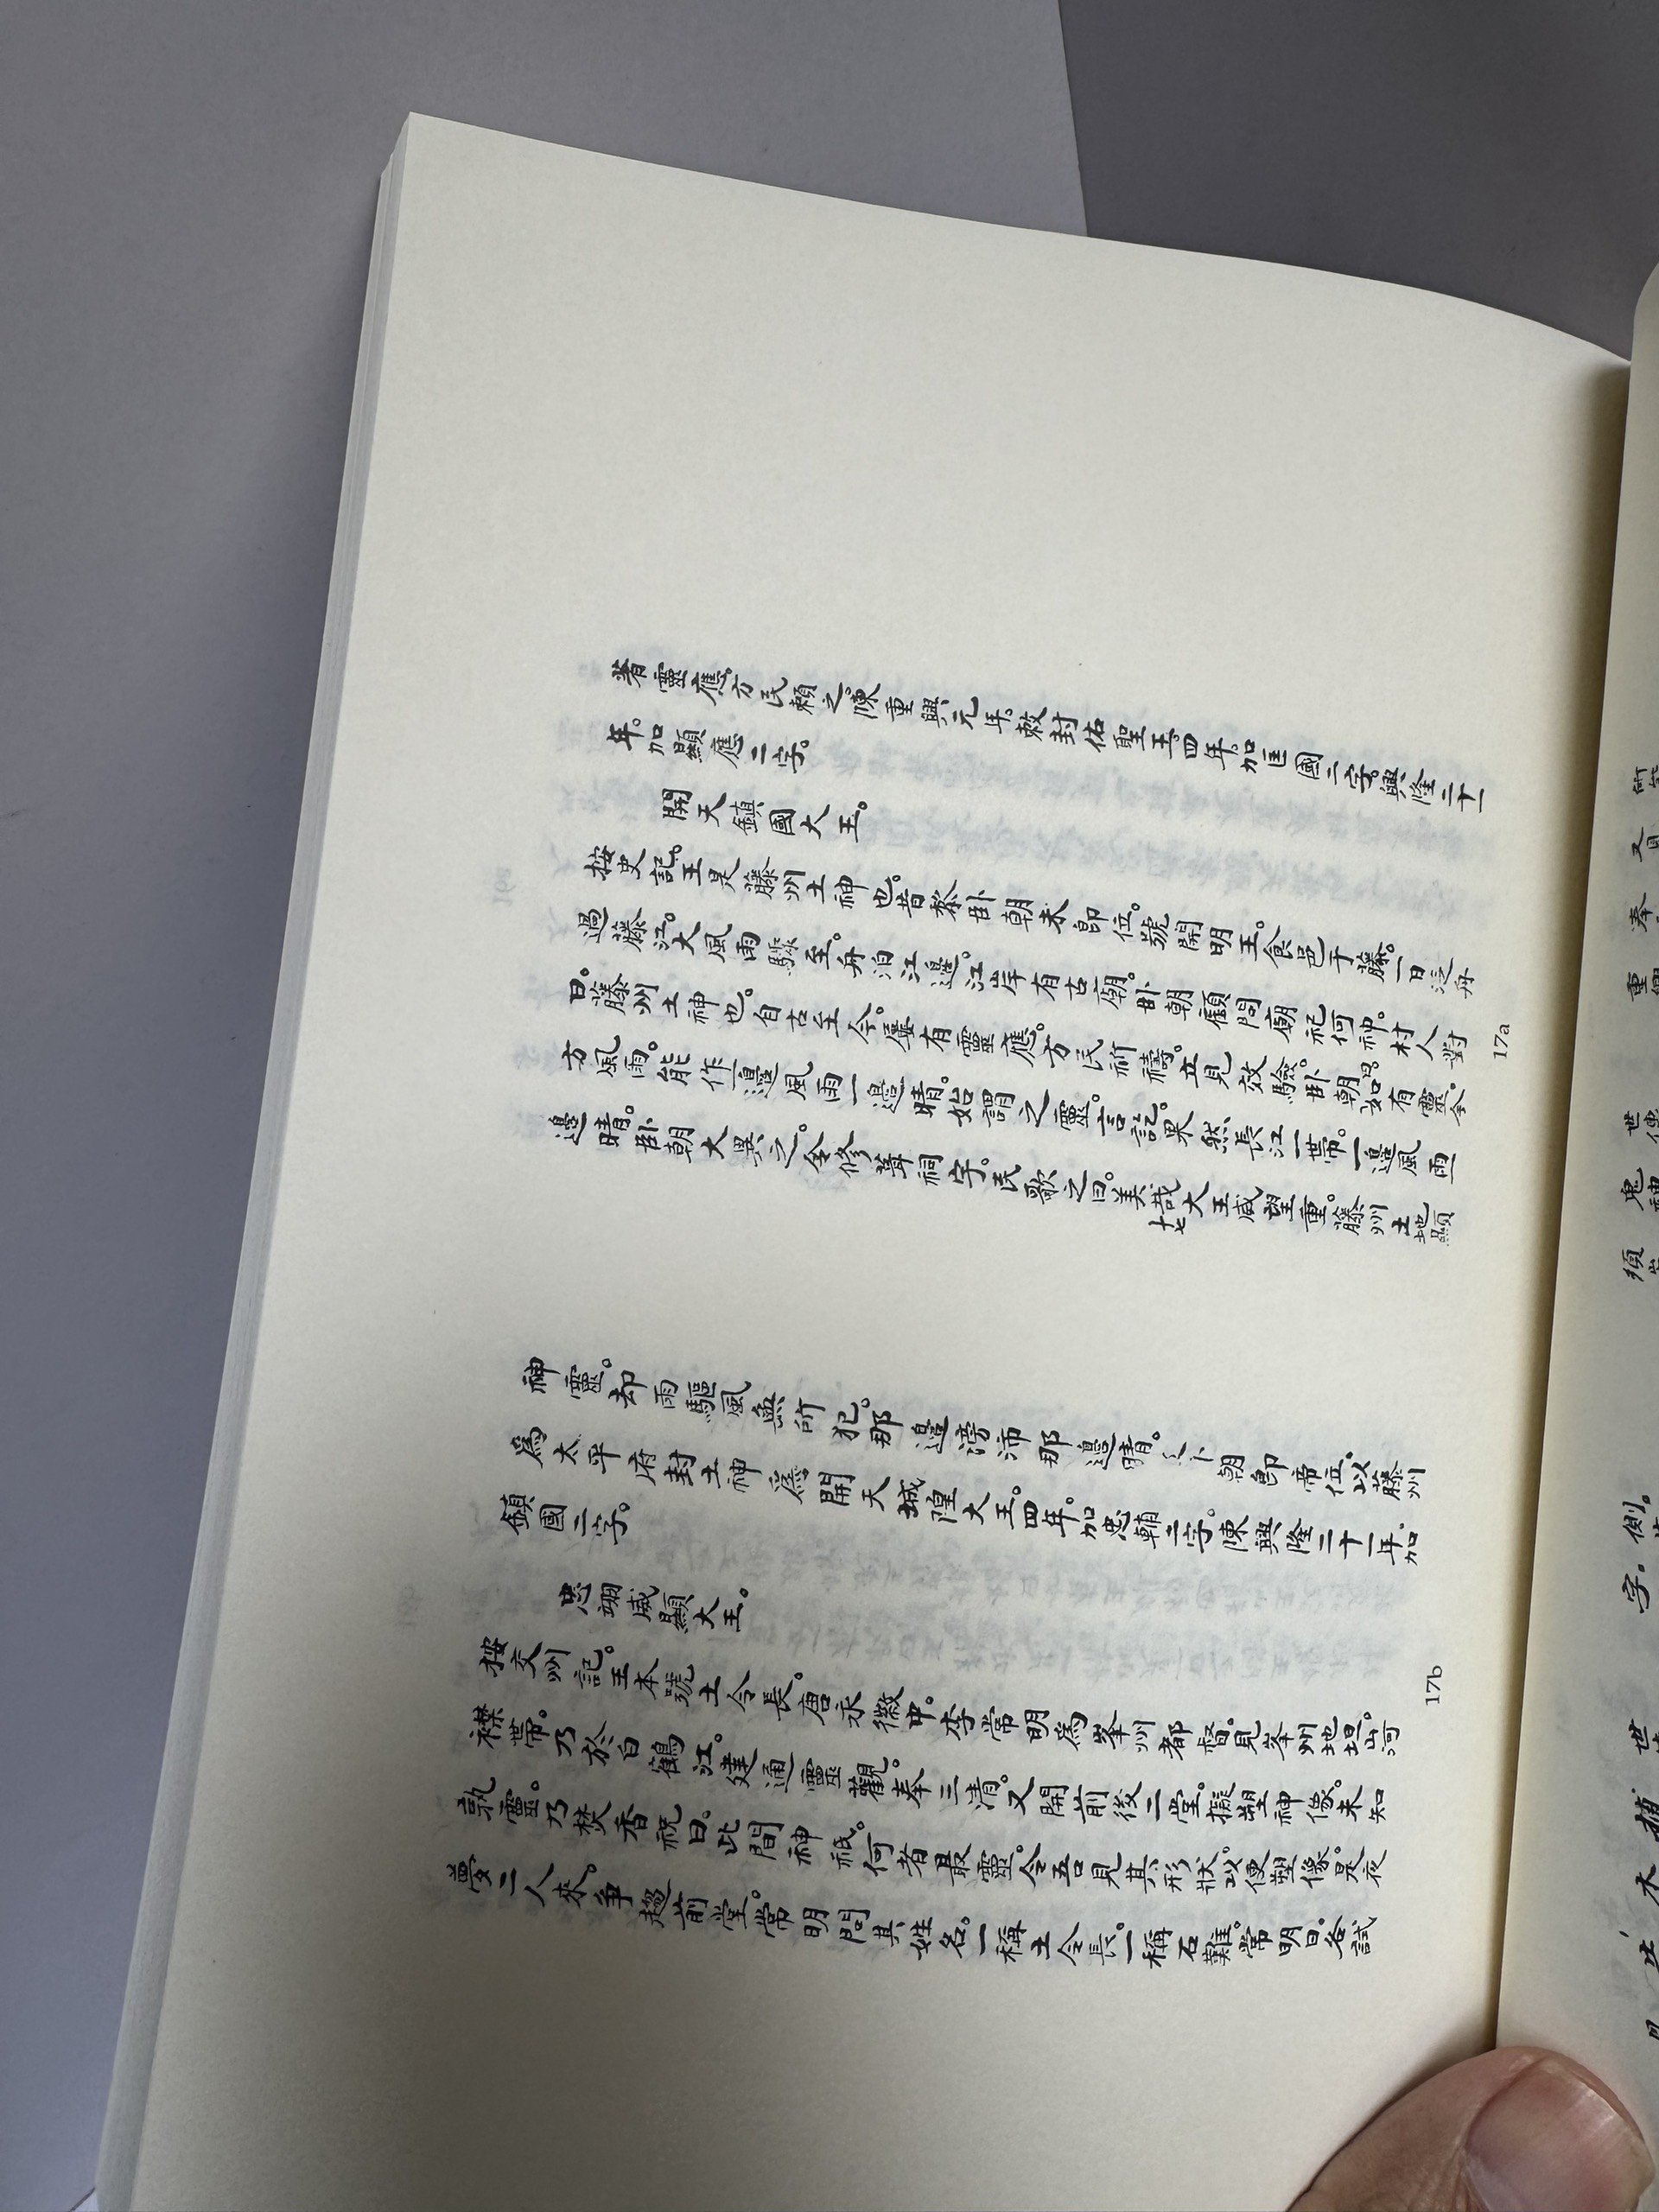 著靈應。方民賴之。陳重興元年。敕封佑聖王。四年。加匡國二字。興隆二十一
年。加顯應二字。
開天鎮國大王。
按史記。王是藤州土神也。昔黎卧朝未即位。號開明王。食邑于藤。一日泛舟
過藤江。大風雨驟至。舟泊江邊。江岸有古廟。卧朝顧問廟祀何神。村人對
曰。藤州土神也。自古至今。屢有靈應。方民祈禱。立見效驗。卧朝曰。如有靈。今
方風雨。能作一邊風雨一邊晴。始謂之靈。言訖。果然長江一帶。一邊風雨一
邊晴。卧朝大異之。令修葺祠宇。民歌之曰。美哉大王威望重。藤州土地顯
十七
17a
神靈。却雨驅風無所犯。那邊滂沛那邊晴。卜朝即帝位。以藤州
爲太平府。封土神爲開天城隍大王。四年。加忠輔二字。陳興隆二十一年。加
鎮國二字。
忠翊威顯大王。
按交州記。王本號土令長。唐永徽中。李常明爲峯州都督。見峯州地坦。山河
襟帶。乃於白鶴江。建通靈觀。奉三清。又開前後二堂。擬塑神像。未知
孰靈。乃焚香祝曰。此間神祇。何者最靈。令吾見其形狀。以便塑像。是夜
夢二人來。爭趨前堂。常明問其姓名。一稱土令長。一稱石難。常明曰。各試
17b